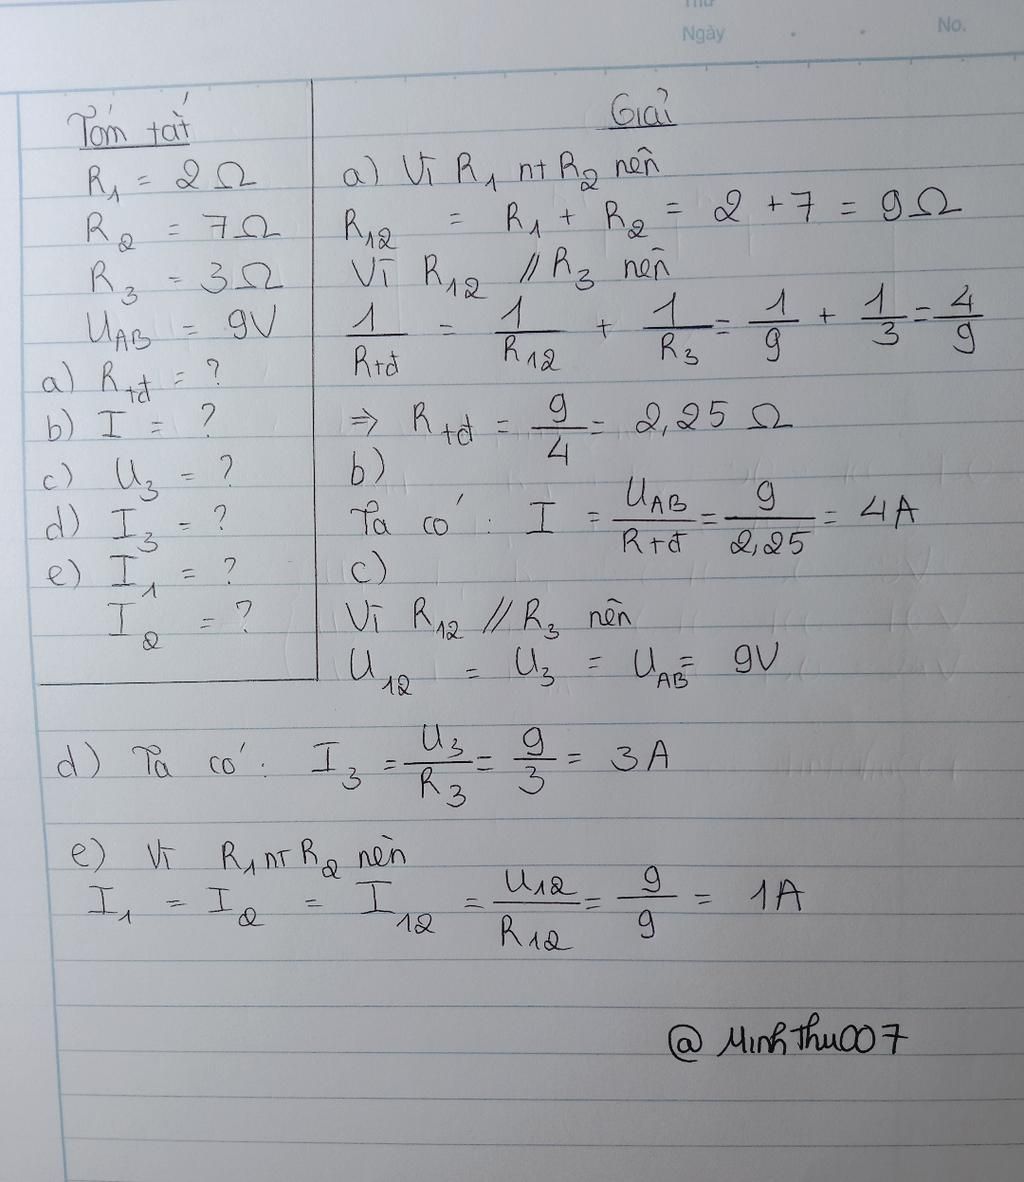 Thứ
Ngày . . No.
Tóm tắt
R₁ = 2Ω
R₂ = 7Ω
R₃ = 3Ω
U_AB = 9V
a) R_tđ = ?
b) I = ?
c) U₃ = ?
d) I₃ = ?
e) I₁ = ?
I₂ = ?
Giải
a) Vì R₁ nt R₂ nên
R₁₂ = R₁ + R₂ = 2 + 7 = 9Ω
Vì R₁₂ // R₃ nên
1/R_tđ = 1/R₁₂ + 1/R₃ = 1/9 + 1/3 = 4/9
⇒ R_tđ = 9/4 = 2,25 Ω
b)
Ta có: I = U_AB/R_tđ = 9/2,25 = 4A
c)
Vì R₁₂ // R₃ nên
U₁₂ = U₃ = U_AB = 9V
d) Ta có: I₃ = U₃/R₃ = 9/3 = 3A
e) Vì R₁ nt R₂ nên
I₁ = I₂ = I₁₂ = U₁₂/R₁₂ = 9/9 = 1A
@MinhThu007